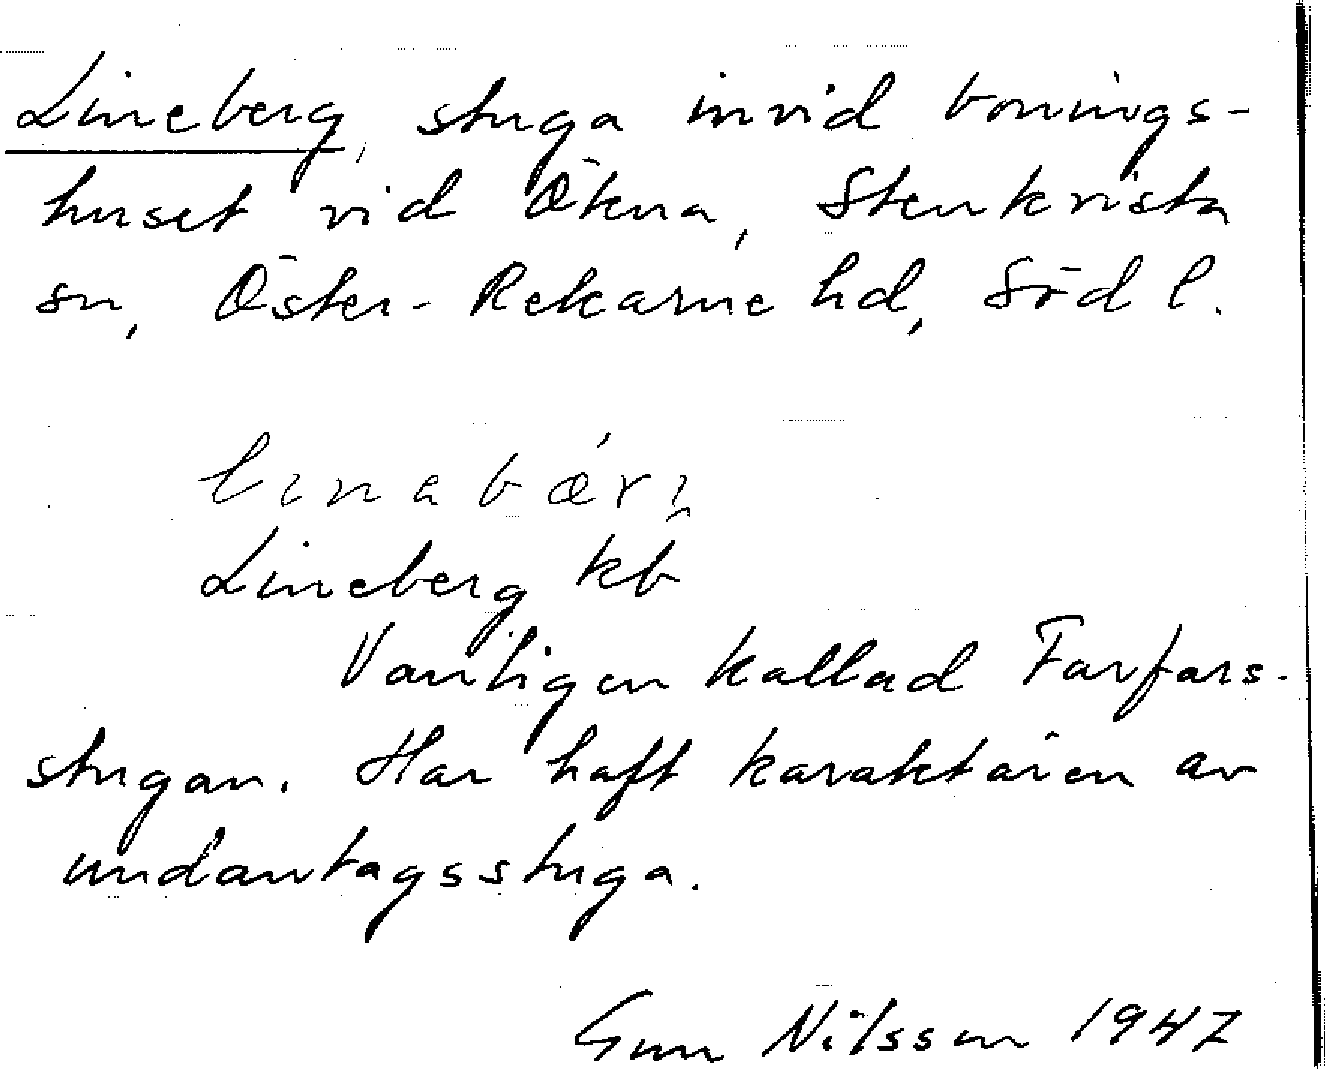 Lineberg, stuga invid bonings-
huset vid Ökna, Stenkvista
sn, Öster-Rekarne hd, Söd l.
Lineberg kb
Vanligen kallad Farfars-
stugan. Har haft karaktären av
undantagsstuga.
Gun Nilsson 1947